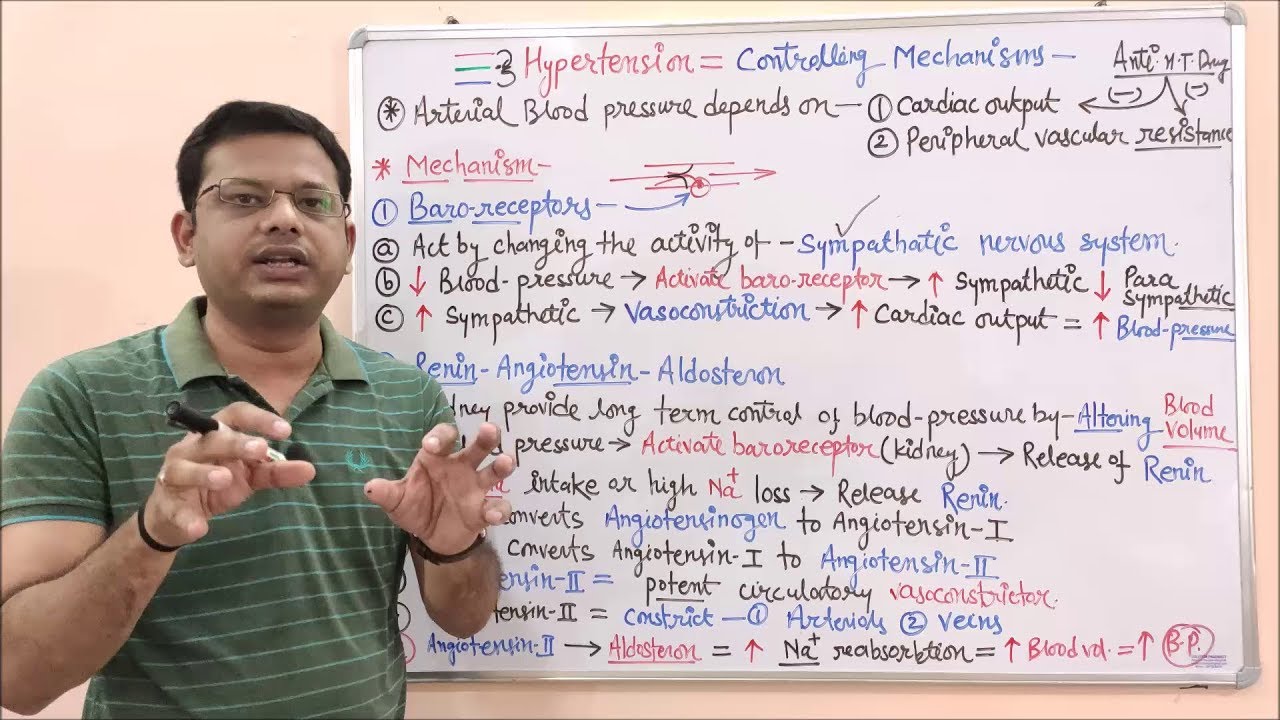 Hypertension = Controlling Mechanisms -
Anti. H.T. Drug
(-) (-)
* Arterial Blood pressure depends on - ① Cardiac output
② Peripheral vascular resistance
* Mechanism -
① Baro-receptors -
ⓐ Act by changing the activity of - Sympathatic nervous system.
ⓑ ↓ Blood-pressure → Activate baro-receptor → ↑ Sympathetic ↓ Para Sympathetic
ⓒ ↑ Sympathetic → Vasoconstriction → ↑ Cardiac output = ↑ Blood-pressure
Renin-Angiotensin-Aldosteron
idney provide long term control of blood-pressure by - Altering Blood Volume
pressure → Activate baroreceptor (kidney) → Release of Renin
Na⁺ intake or high Na⁺ loss → Release Renin.
converts Angiotensinogen to Angiotensin-I
converts Angiotensin-I to Angiotensin-II
tensin-II = potent circulatory vasoconstrictor.
tensin-II = constrict - ① Arteriols ② veens
Angiotensin-II → Aldosteron = ↑ Na⁺ reabsorbtion = ↑ Blood vol. = ↑ B.P.